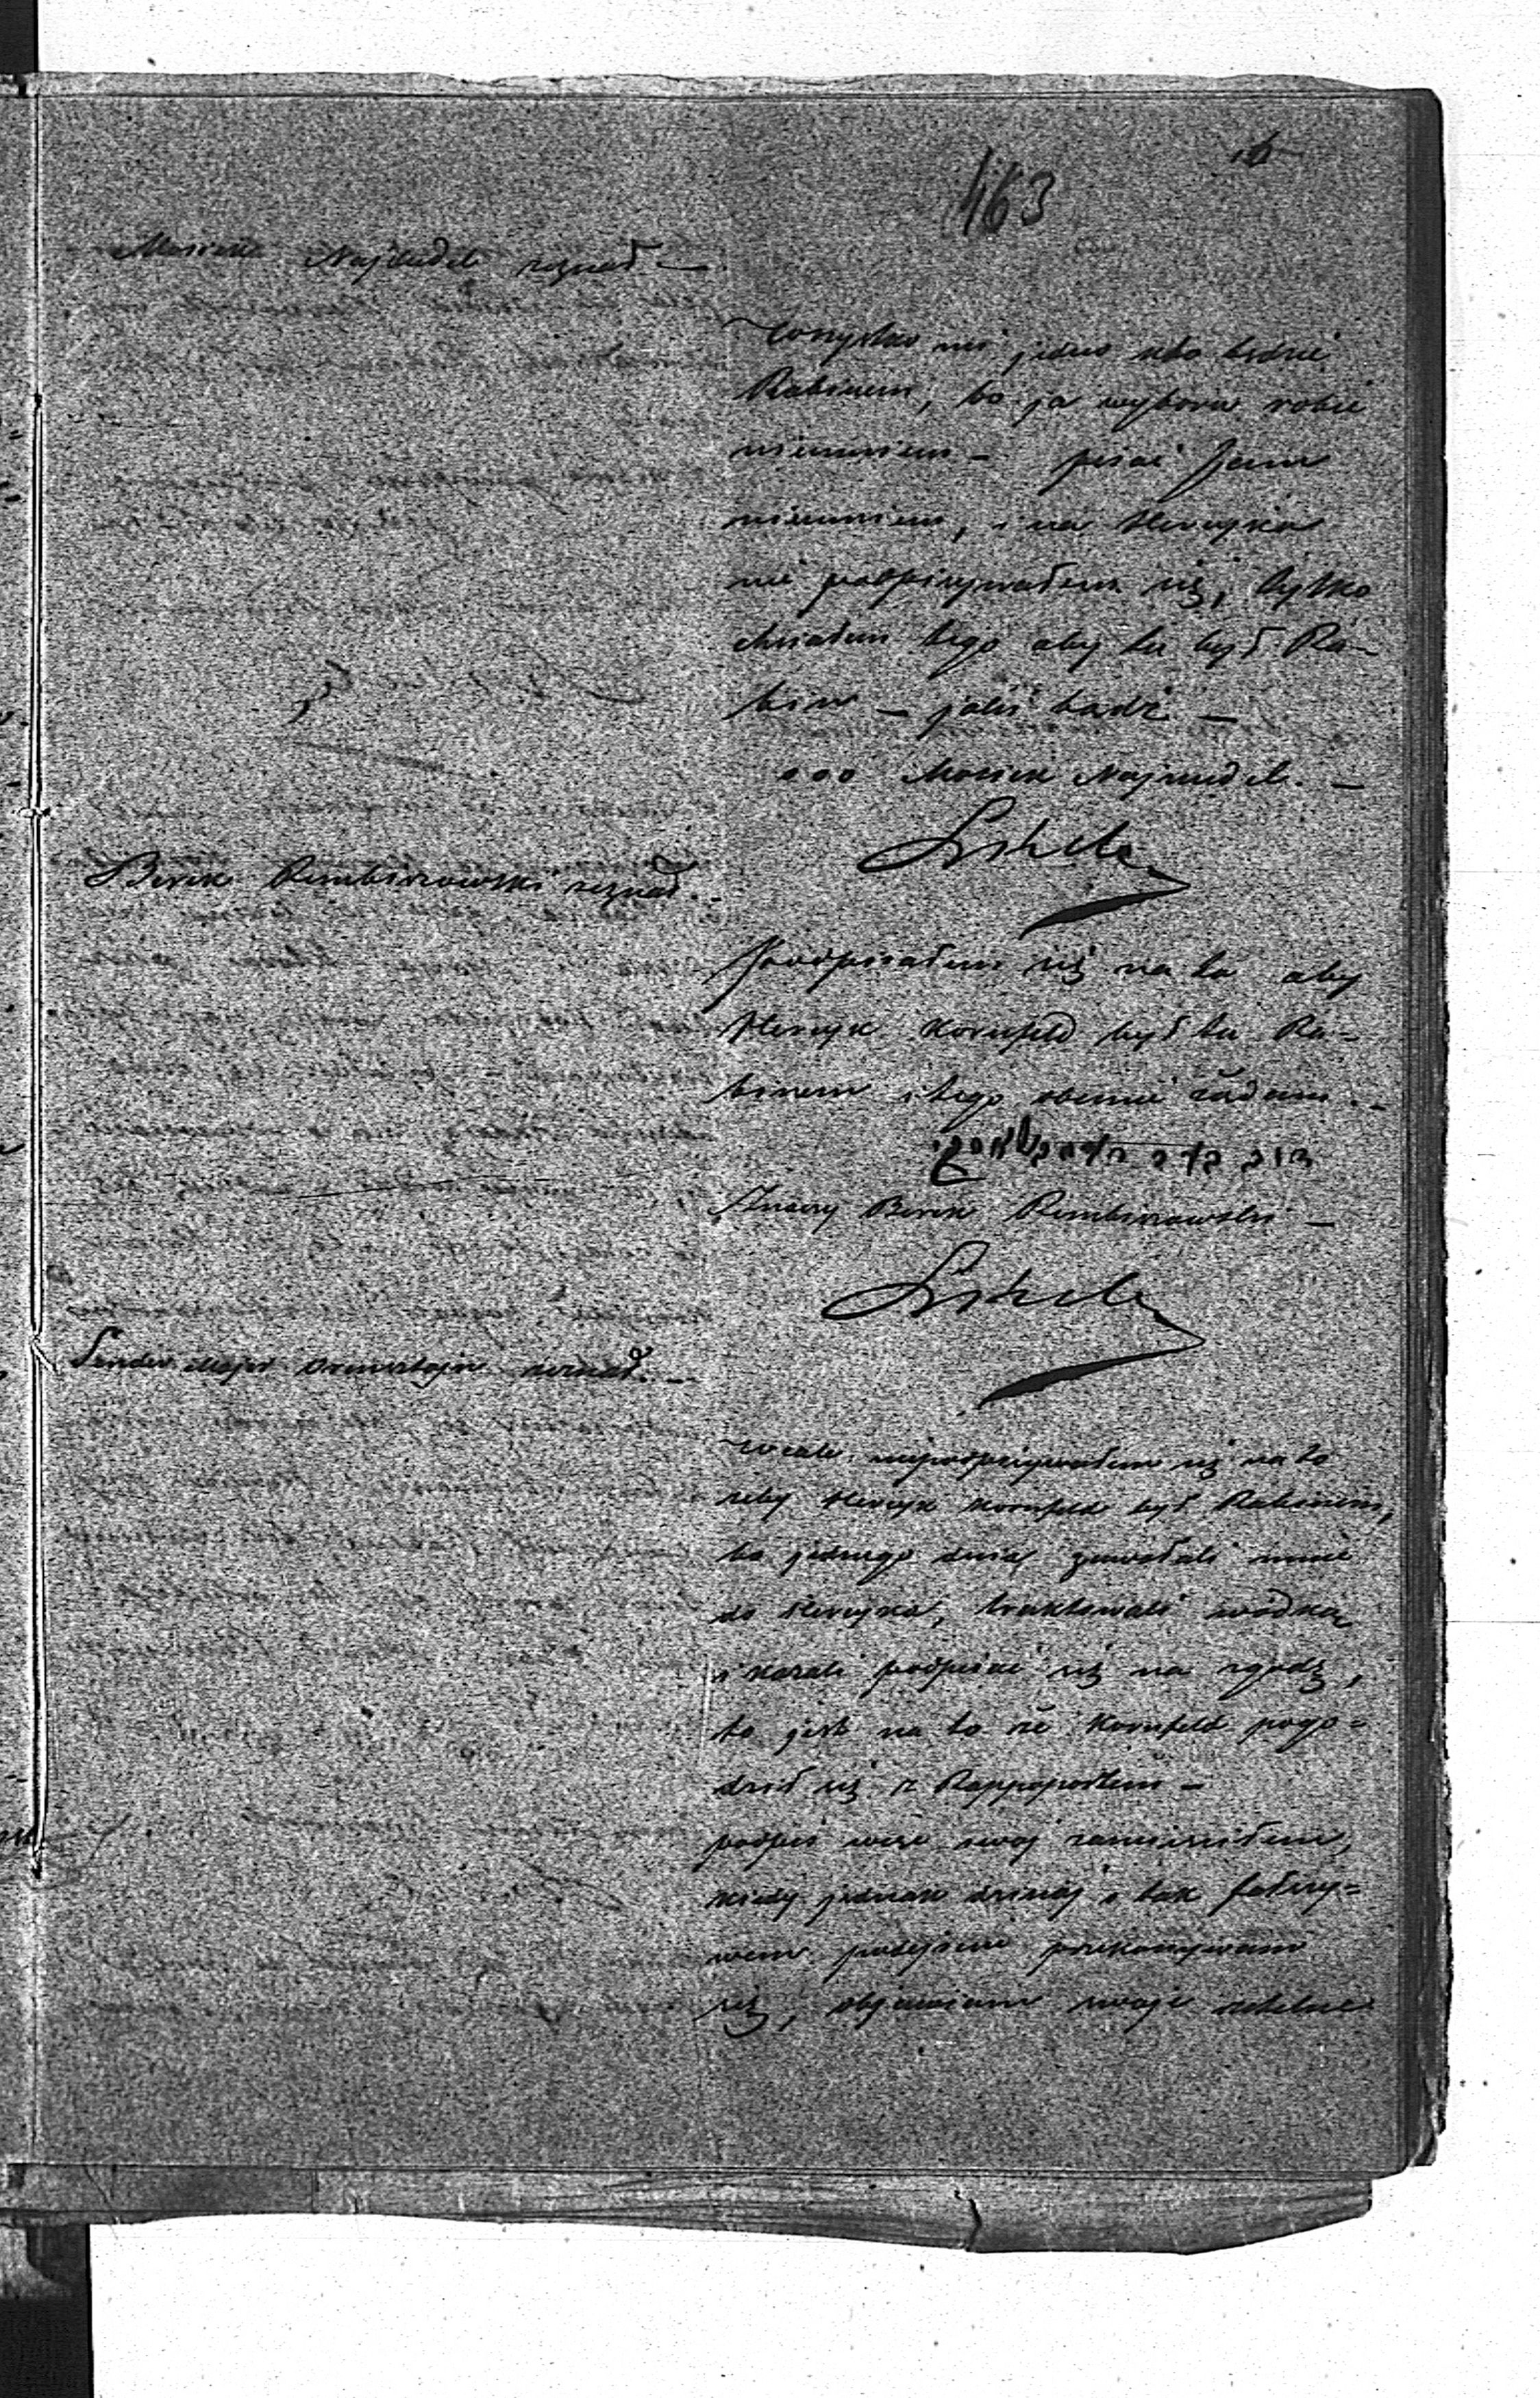 463
16
Mosiek Najdudel zeznał. —
Wszystko mi jedno kto będzie
Rabinem, bo ja wyboru robić
nieumiem — pisać Jam
nieumiem, i na Herszyka
nie podpisywałem się, tylko
chciałem tego aby tu był Ra-
bin — jakiś bądź —
ooo Mosiek Najdudel. —
Berek Rembiszowski zeznał. -
Podpisałem się na to aby
Herszyk Kornfeld był tu Ra-
binem i tego obecnie żądam. -
Znaczy Berek Rembiszowski —
Sender Majer Orensztajn zeznał. —
Wcale niepodpisywałem się na to
żeby Herszyk Kornfeld był Rabinem,
bo jednego dnia zawołali mnie
do Herszyka, traktowali wódką
i kazali podpisać się na zgodę,
to jest na to że Kornfeld pogo=
dził się z Rappoportem —
podpis więc swój zamieściłem,
kiedy jednak dzisiaj o tak fałszy=
wem podejściu przekonywam
się, objawiam swoje rzetelne